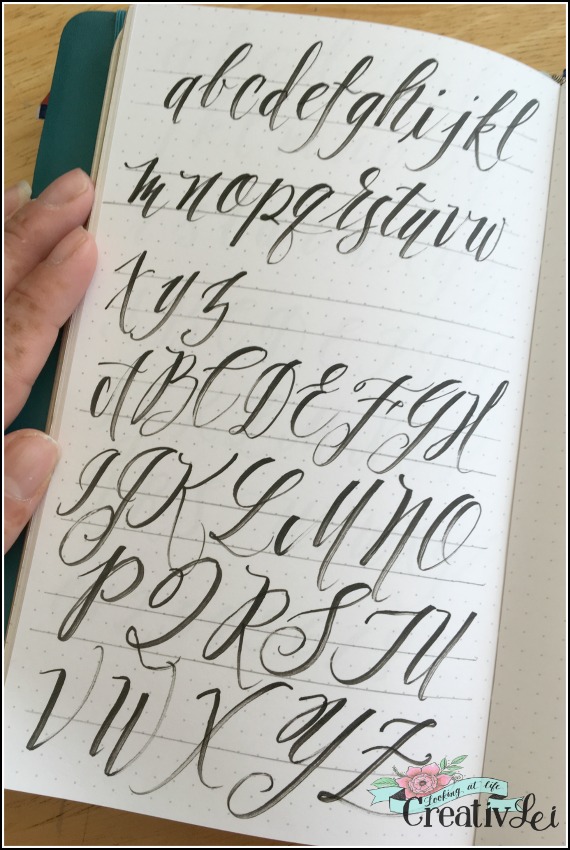 abcdefghijkl
mnopqrstuvw
xyz
ABCDEFGH
IJKLMNO
PQRSTU
VWXYZ
Looking at life
CreativLei